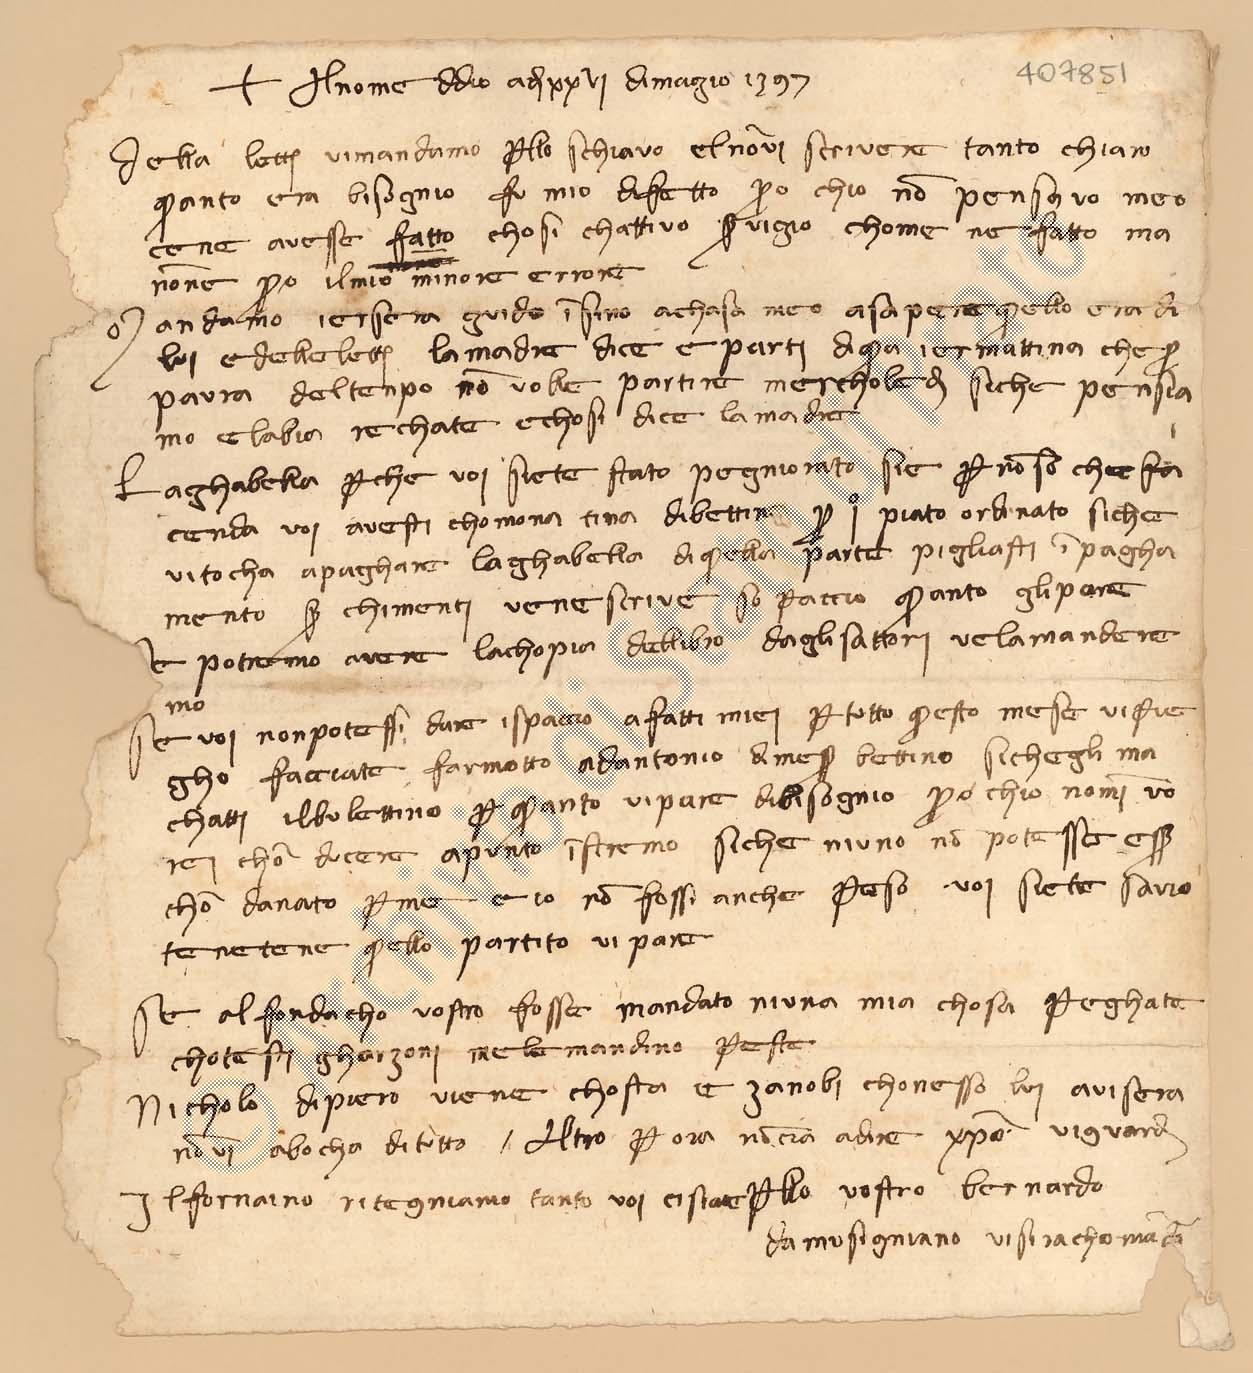 407851
+ Al nome ddio adì xxvi di magio 1397
Della lett. vi mandamo p(er) llo schiavo el nō vi scrivere tanto chiaro
quanto era bisognio fu mio difetto p(er)o ch'io nō pensavo meo
cene avesse fatto chosi chattivo s(er)vigio chome ne fatto ma
nōne p(er)o il mio minore errore
andamo iersera guido īsino a chasa meo a sapere quello era di
lui e delle lett. la madre dice e parti di qua ier mattina che p(er)
paura del tenpo nō volle partire mercholedì siche pensia
mo e labia rechate e chosi dice la madre
La ghabella p(er)che voi siete stato pegniorato sie p(er) nō so che fa
cenda voi avesti cho mona tina di bettino p(er) j° piato ordinato siche
vi tocha a paghare la ghabella di quella parte pigliasti ī pagha
mento s(er) chimenti ve ne scrive so p(er) accio quanto gli pare
e potremo avere la chopia del libro dagli sattori ve la mandere
mo
Se voi non potessi dare ispaccio a fatti miei p(er) tutto questo mese vi prie
gho facciate farmotto ad antonio di mes(er) bettino siche gli ma
chatti il bulettino p(er) quanto vi pare di bisognio p(er)o ch'io nō mi vo
rei chō ducere apunto īstremo siche niuno nō potesse ess(er)
chō danato p(er) me e io nō fossi anche p(re)so voi siete savio
tenetene quello partito vi pare
Se al fondacho vostro fosse mandato niuna mia chosa p(re)ghate
chotesti gharzoni me le mandino p(re)ste
Nicholo di piero viene chosta e zanobi chon esso lui avisera
nōvi a bocha di tutto / Altro p(er) ora nō cia a dire xpō vi guardi
Il fornaino ritegniamo tanto voi ci siate p(er) llo vostro bernardo
da musigniano vi si rachomāda